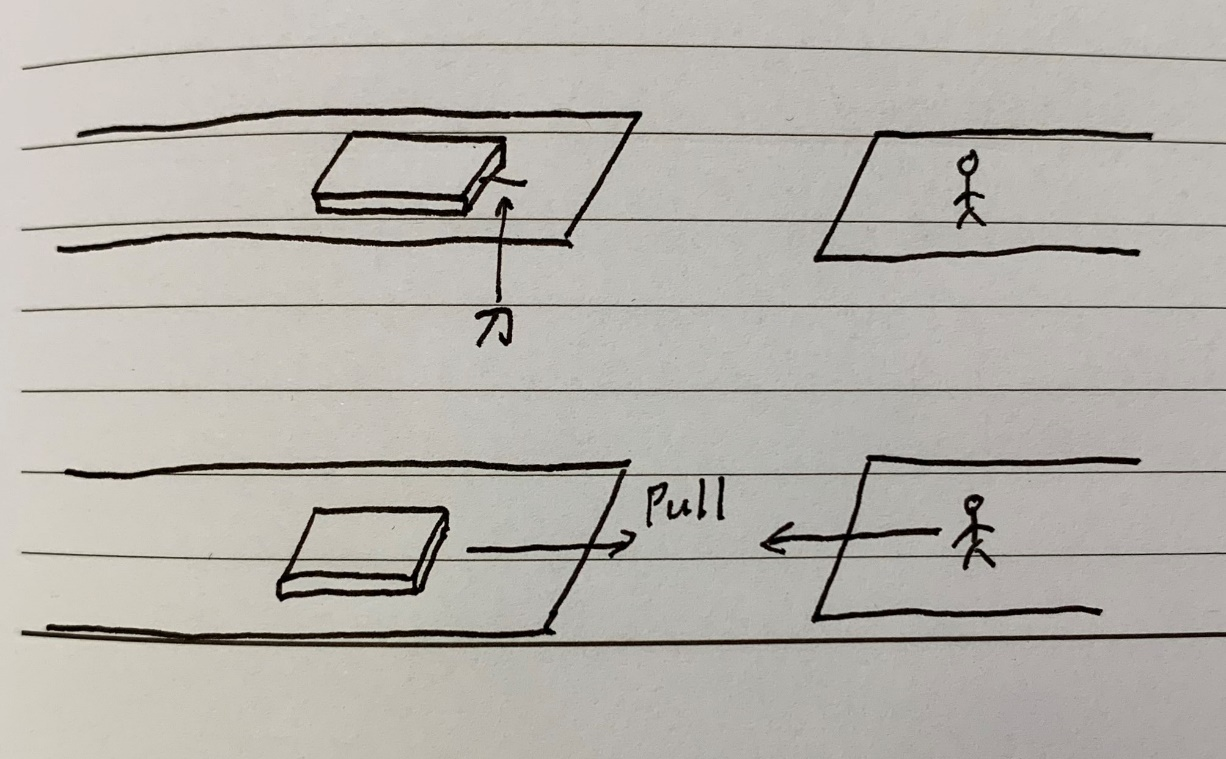 刀
Pull